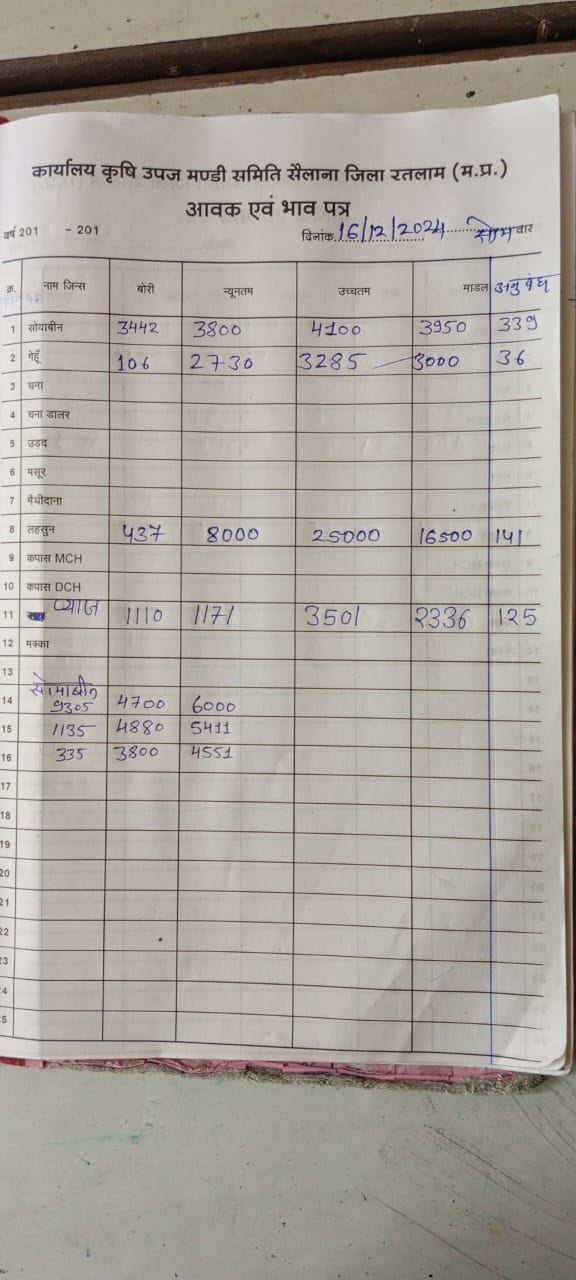 कार्यालय कृषि उपज मण्डी समिति सैलाना जिला रतलाम (म.प्र.)
आवक एवं भाव पत्र
वर्ष 201 - 201 दिनांक 16/12/2024 सोमवार
क्र. नाम जिन्स बोरी न्यूनतम उच्चतम माडल अनुबंध
1 सोयाबीन 3442 3800 4100 3950 339
2 गेहूँ 106 2730 3285 3000 36
3 चना
4 चना डालर
5 उड़द
6 मसूर
7 मैथीदाना
8 लहसुन 437 8000 25000 16500 141
9 कपास MCH
10 कपास DCH
11 प्याज 1110 1171 3501 2336 125
12 मक्का
13
सोयाबीन
14 9305 4700 6000
15 1135 4880 5411
16 335 3800 4551
17
18
19
20
21
22
23
24
25